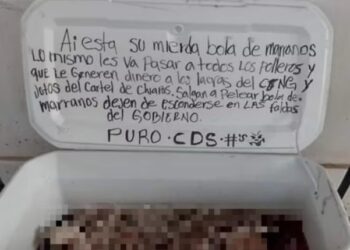 Ai esta su mierda bola de marranos
Lo mismo les va Pasar a todos Los Polleros y
que Le Generen dinero a las lacras del CJNG y
Jotos del Cartel de Chiapas. Salgan a Pelear bola de
marranos dejen de Esconderse en LAS faldas
del GOBIERNO.
PURO • CDS •